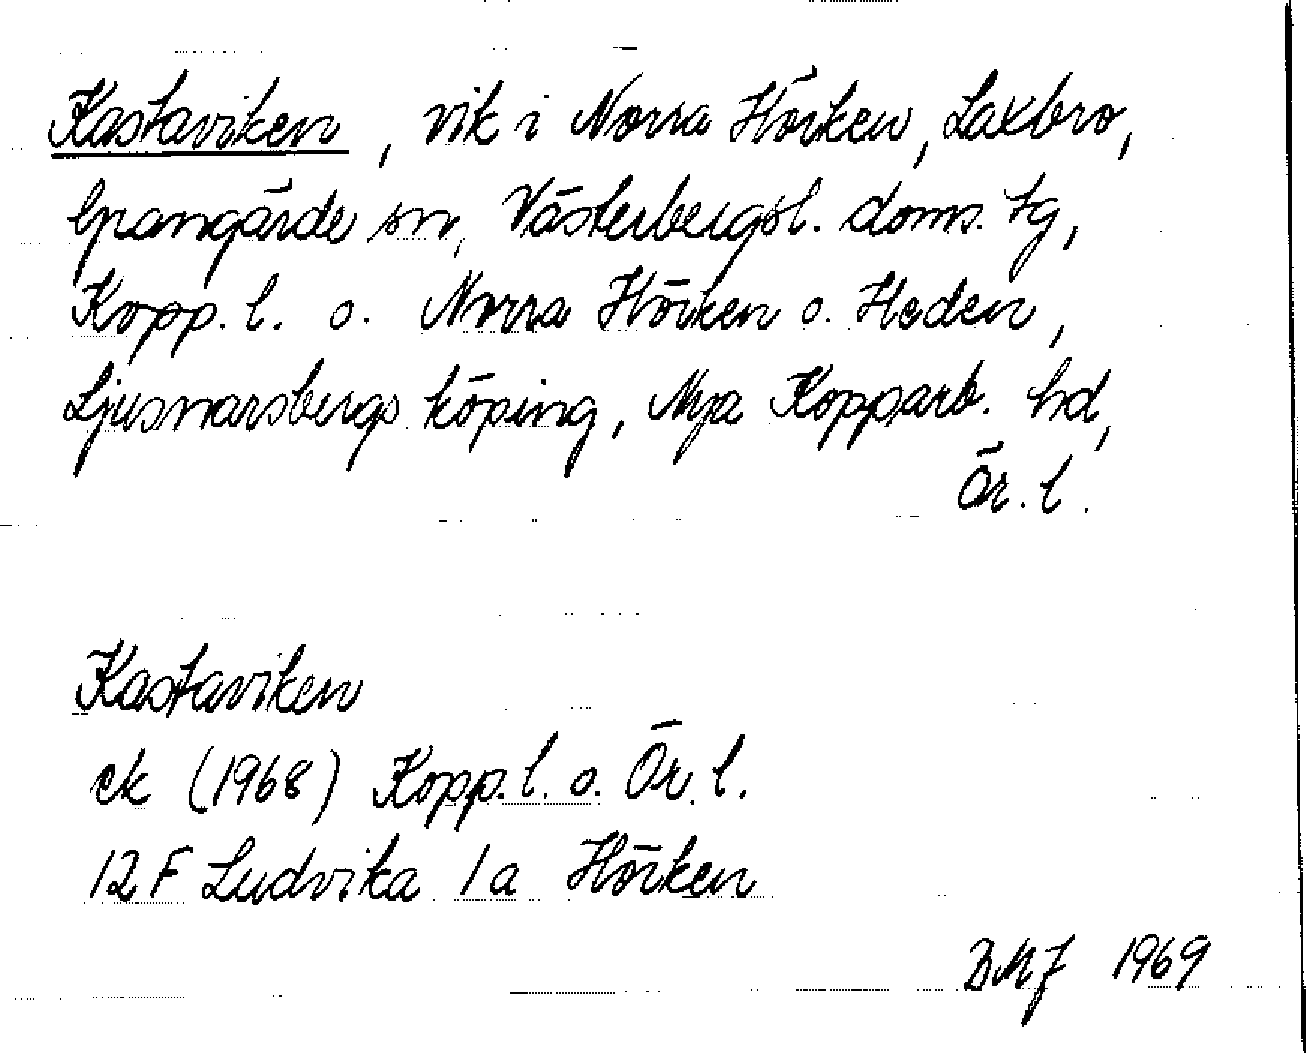 Kastaviken, vik i Norra Hörken, Laxbro,
Grangärde sn, Västerbergsl. doms. tg,
Kopp. l. o. Norra Hörken o. Heden,
Ljusnarsbergs köping, Nya Kopparb. hd,
Ör. l.
Kastaviken
ek (1968) Kopp. l. o. Ör. l.
12 F Ludvika 1a Hörken
BMJ 1969